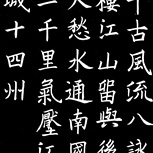 千古風流八詠
樓江山留與後
人愁水通南國
三千里氣壓江
城十四州